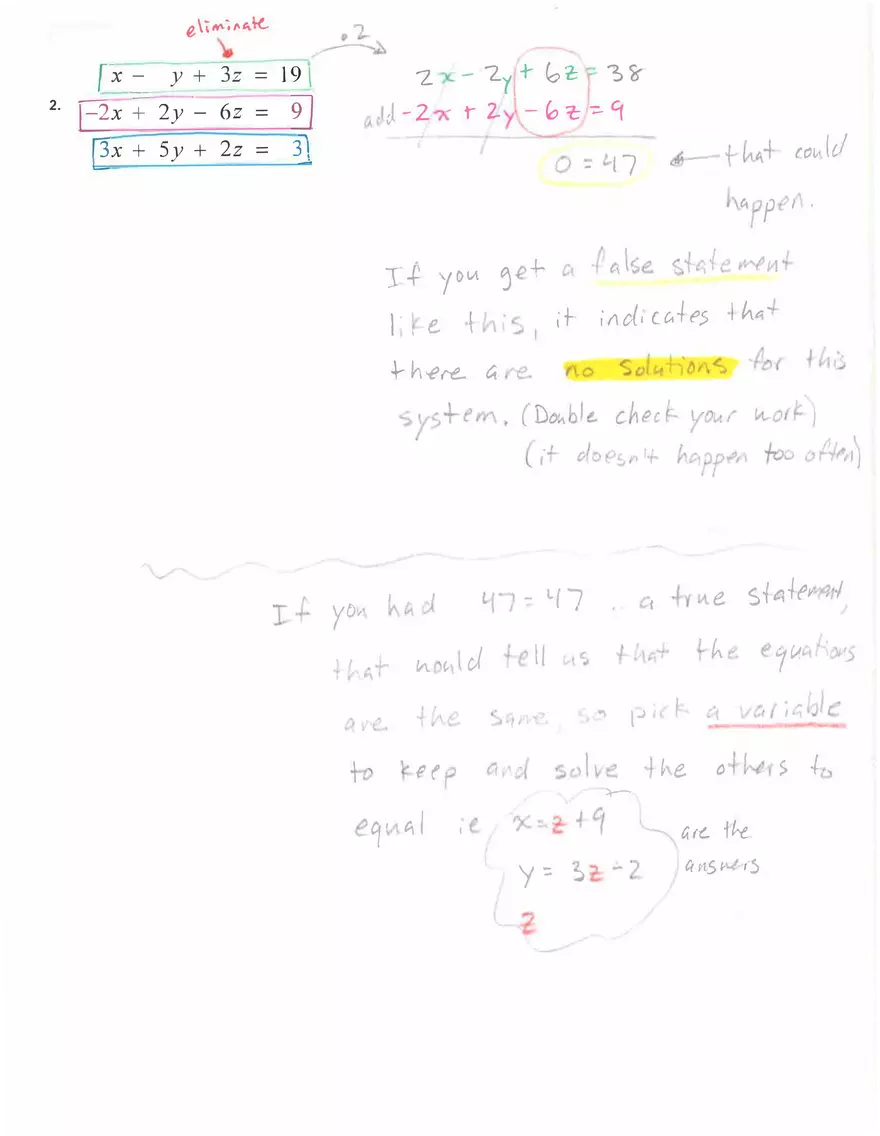 eliminate
·2
2.
x − y + 3z = 19
−2x + 2y − 6z = 9
3x + 5y + 2z = 3
2x - 2y + 6z = 38
add -2x + 2y - 6z = 9
0 = 47 ← that could
happen.
If you get a false statement
like this, it indicates that
there are no solutions for this
system. (Double check your work)
(it doesn't happen too often)
If you had 47=47 .. a true statement,
that would tell us that the equations
are the same, so pick a variable
to keep and solve the others to
equal ie x=z+9
y = 3z-2
z
are the
answers